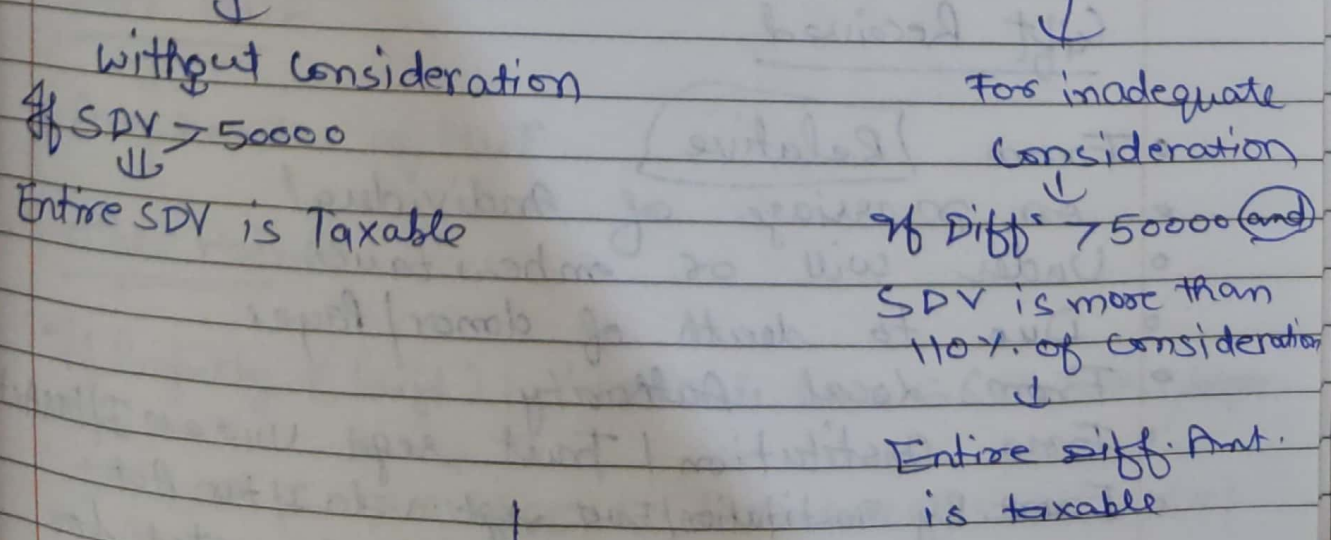 without consideration
If SDV > 50000
Entire SDV is Taxable
For inadequate
consideration
If Diff > 50000 and
SDV is more than
110%. of consideration
Entire Diff. Amt.
is taxable